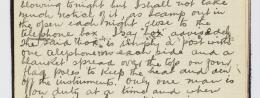 blowing tonight but I shall not take
much notice of it, as I camp out in
the open each night close to the
telephone box. I say "box" advisedly
the said "box" is simply a post with
one telephone on each side and a
blanket spread over the top on four
flag poles to keep the heat and
of the instruments. Only one man is
on duty at a time and when